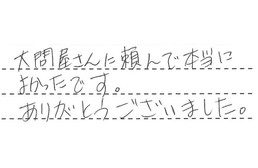 大問屋さんに頼んで本当に
よかったです。
ありがとうございました。